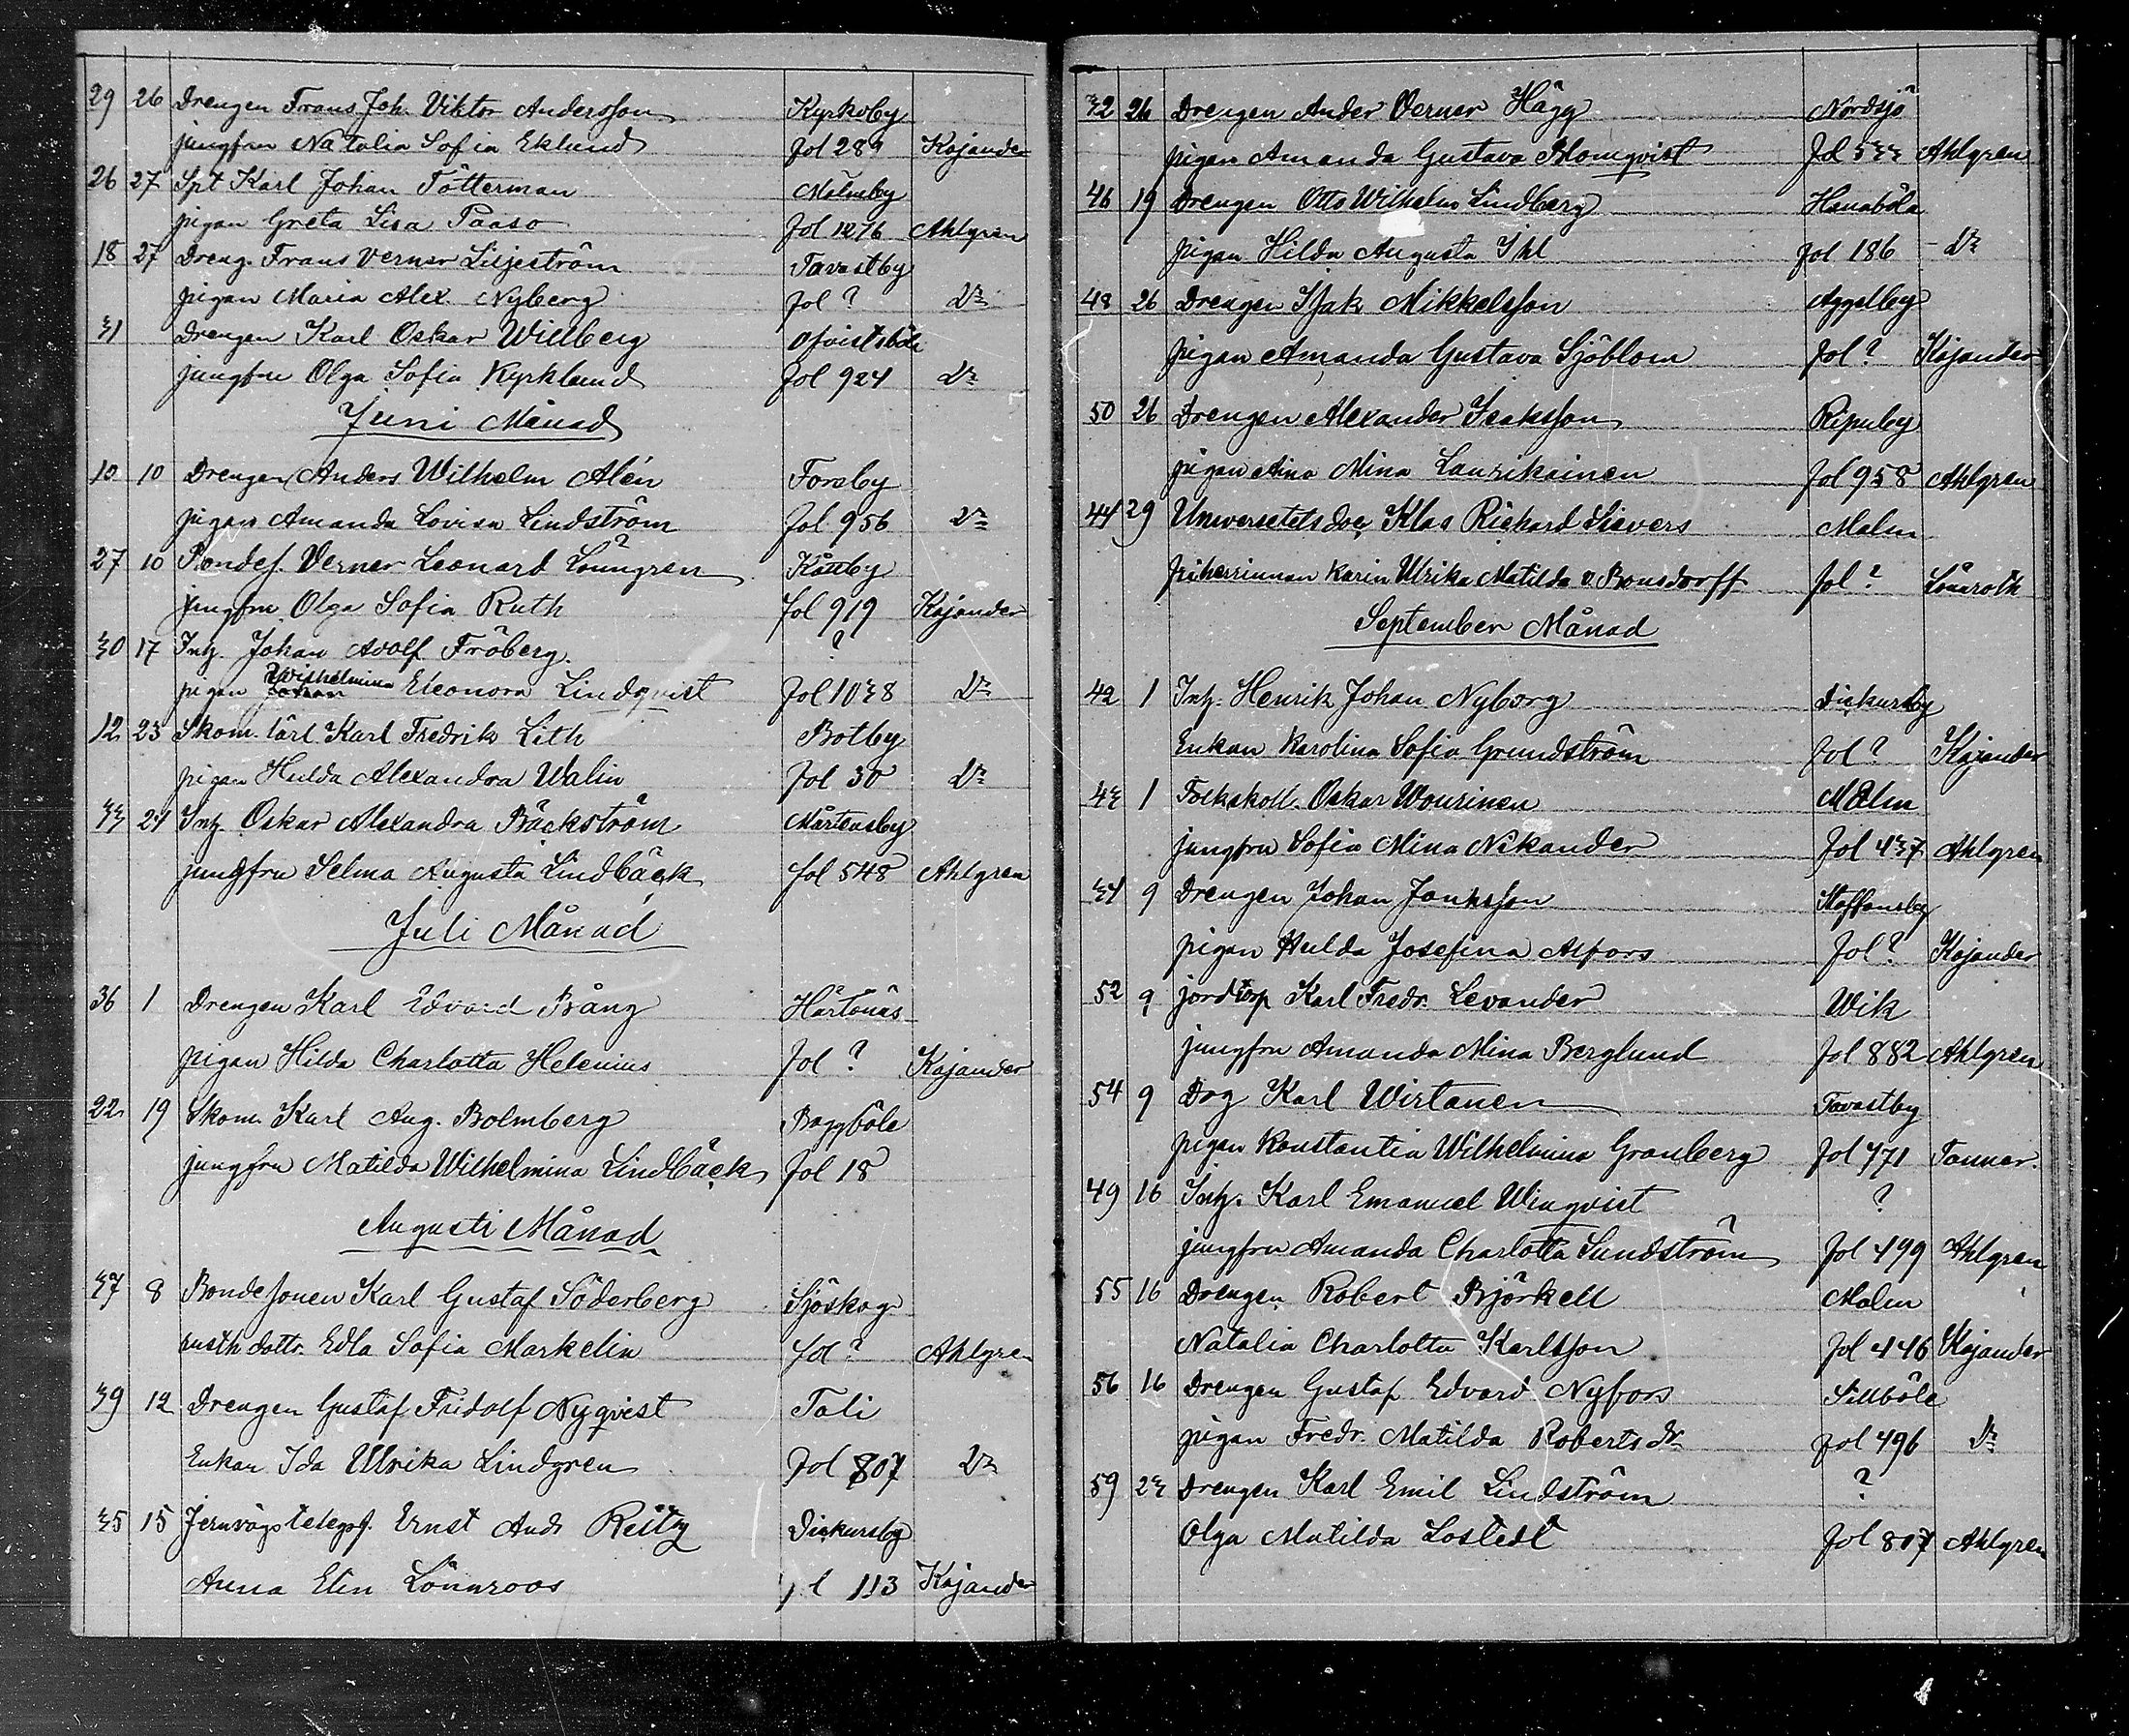 29 26 Drengen Frans Joh. Viktor Andersson Kyrkoby
jungfrun Natalia Sofia Eklund fol 289 Kajander
26 27 Spt Karl Johan Tötterman Malmby
pigan Greta Lisa Paaso fol 1276 Ahlgren
18 27 Dreng. Frans Verner Liljeström Tavastby
pigan Maria Alex. Nyberg fol ? Dr
31 Drengen Karl Oskar Willberg
jungfru Olga Sofia Kyrklund fol 924 Dr
Juni Månad
10 10 Drengen Anders Wilhelm Alén Forsby
pigan Amanda Lovisa Lindström fol 956 Dr
27 10 Bondes. Verner Leonard Lönngren Kottby
jungfru Olga Sofia Ruth fol 919 Kajander
30 17 Inh. Johan Adolf Fröberg. ?
pigan Wilhelmina Eleonora Lindqvist fol 1038 Dr
12 23 Skom. lärl Karl Fredrik Lith Botby
pigan Hulda Alexandra Walin fol 30 Dr
33 24 Inh. Oskar Alexandra Bäckström Mårtensby
jungfru Selma Augusta Lindbäck fol 548 Ahlgren
Juli Månad
36 1 Drengen Karl Edvard Bång Härtönäs
pigan Hilda Charlotta Helenius fol ? Kajander
22 19 Skom. Karl Aug. Bolmberg Baggböle
jungfru Matilda Wilhelmina Lindbäck fol 18
Augusti Månad
37 8 Bondesonen Karl Gustaf Söderberg Sjöskog
rusth dottr. Edla Sofia Markelin fol ? Ahlgren
39 12 Drengen Gustaf Fridolf Nyqvist Tali
Enkan Ida Ulrika Lindgren fol 807 Dr
35 15 Jernvägstelegrf. Ernst And. Reitz Dickursby
Anna Elin Lönnroos fol 113 Kajander
32 26 Drengen Ander Verner Hägg Nordsjö
pigan Amanda Gustava Blomqvist fol 533 Ahlgren
46 19 Drengen Otto Wilhelm Lindberg Hanaböle
pigan Hilda Augusta Ihl fol 186 Dr
48 26 Drengen Isak Mikkelsson Aggelby
pigan Amanda Gustava Sjöblom fol ? Kajander
50 26 Drengen Alexander Isaksson Ripuby
pigan Aina Mina Laurikainen fol 958 Ahlgren
44 29 Universetets doc, Klas Richard Sievers Malm
friherrinnan Karin Ulrika Matilda v. Bonsdorff fol ? Lönnroth
September Månad
42 1 Inh. Henrik Johan Nyborg Dickursby
Enkan Karolina Sofia Grundström fol ? Kajander
43 1 Folkskoll. Oskar Wourinen Malm
jungfru Sofia Mina Nikander fol 437 Ahlgren
34 9 Drengen Johan Jonksson Staffansby
pigan Hulda Josefina Alfors fol ? Kajander
52 9 jordtorp Karl Fredr. Levander Wik
jungfru Amanda Mina Berglund fol 882 Ahlgren
54 9 Drg Karl Wirtanen Tavastby
pigan Konstantia Wilhelmina Granberg fol 471 Tanner.
49 16 Inh. Karl Emanuel Winqvist ?
jungfru Amanda Charlotta Sundström fol 499 Ahlgren
55 16 Drengen Robert Björkell Malm
Natalia Charlotta Karlsson fol 446 Kajander
56 16 Drengen Gustaf Edvard Nyfors Sillböle
pigan Fredr. Matilda Roberts dr fol 496 Dr
59 23 Drengen Karl Emil Lindström ?
Olga Matilda Lostedt fol 807 Ahlgren